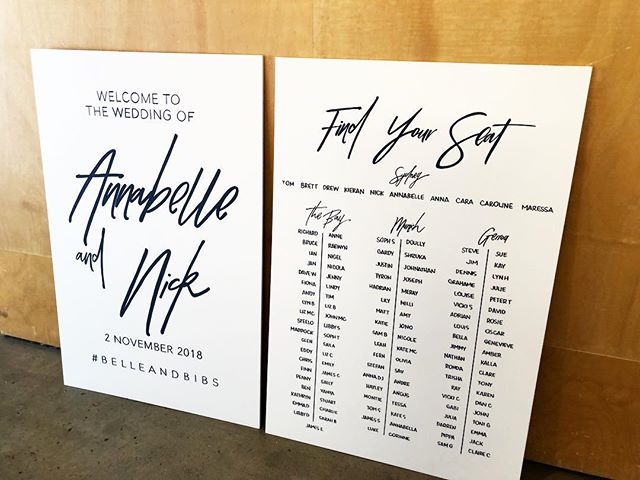 WELCOME TO
THE WEDDING OF
Annabelle
and
Nick
2 NOVEMBER 2018
#BELLEANDBIBS
Find Your Seat
Sydney
TOM BRETT DREW KIERAN NICK ANNABELLE ANNA CARA CAROLINE MARESSA
The Bay
RICHARD ANNE
BRUCE RAEWYN
IAN NIGEL
JAN NICOLA
DAVE W JENNY
FIONA LINDY
ANDY TIM
LYN B LIZ B
LIZ MC JOHN MC
STEELO LIBBY S
MADDOCK SOPH T
GLEN SAILA
EDDY LIZ C
CHRIS EMILY
FINN JAMES C
PENNY SALLY
BEN TANYA
KATHRYN STUART
EMMA D CHARLIE
LIBBY D SARAH B
JAMES E
SOPH S DOULLY
GARDY SHZUKA
JUSTIN JOHNATHAN
TYRON JOSEPH
HADRIAN MERAY
LILY MILLI
MATT AMY
KATIE JONO
SAM B NICOLE
LEAH KATE MC
FERN OLIVIA
STEFAN SAY
ANNA DJ ANDRE
HAYLEY ANGUS
MONTIE TESSA
TOM S KATE S
JAMES S ANNABELLA
LUKE CORINNE
Genoa
STEVE SUE
JIM KAY
DENNIS LYN H
GRAHAME JULIE
LOUISE PETER T
VICKI S DAVID
ADRIAN ROSIE
LOUIS OSCAR
BELLA GENEVIEVE
JIMMY AMBER
NATHAN KALLA
RONDA CLARE
TRISHA TONY
RAY KAREN
VICKI G DAN C
GABI JOHN
JULIA TONI G
DARREN EMMA
PIPPA JACK
SAM G CLAIRE C